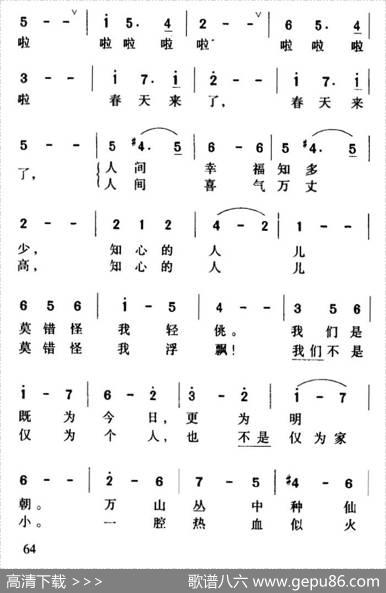 5 - - ∨ | i 5. 4 | 2 - - ∨ | 6 5. 4
啦 啦啦 啦 啦 啦啦 啦
3 - - | i 7. i | 2 - - | i 7. i
啦 春天来 了, 春天来
5 - - | 5 #4. 5 | 6 - 6 | 5 #4. 5
了, 人间 幸 福知多
人间 喜 气万丈
2 - - | 2 1 2 | 4 - 2 | i - -
少, 知心的 人 儿
高, 知心的 人 儿
6 5 6 | i - 5 | 4 - - | 3 5 6
莫错怪 我 轻 佻。 我们是
莫错怪 我 浮 飘! 我们不是
i - 7 | 6 - 2 | 3 - 2 | i - 7
既 为 今 日, 更 为 明
仅 为 个 人, 也 不是 仅为家
6 - - | 2 - 6 | 7 - 5 | #4 - 6
朝。 万 山 丛 中 种 仙
小。 一 腔 热 血 似 火
64
高清下载 >>>
歌谱八六 www.gepu86.com